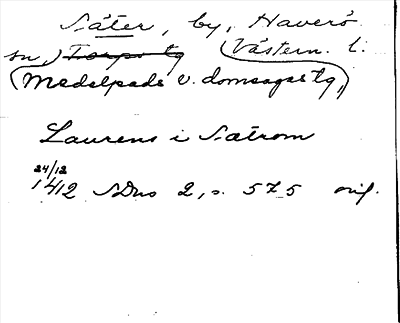 Säter, by, Haverö
sn, Torps tg (Västern. l.
(Medelpads v. domsagas tg)
Laurens i Sætrom
24/12
1412 SDns 2, s. 575 orig.